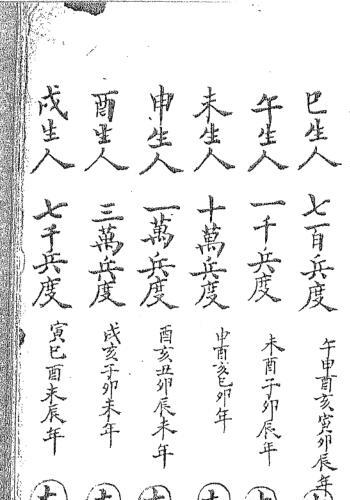 巳生人 七百兵度 午申酉亥寅卯辰年
午生人 一千兵度 未酉子卯辰年
未生人 十萬兵度 申酉亥巳卯年
申生人 一萬兵度 酉亥丑卯辰未年
酉生人 三萬兵度 戌亥子卯未年
戌生人 七千兵度 寅巳酉未辰年